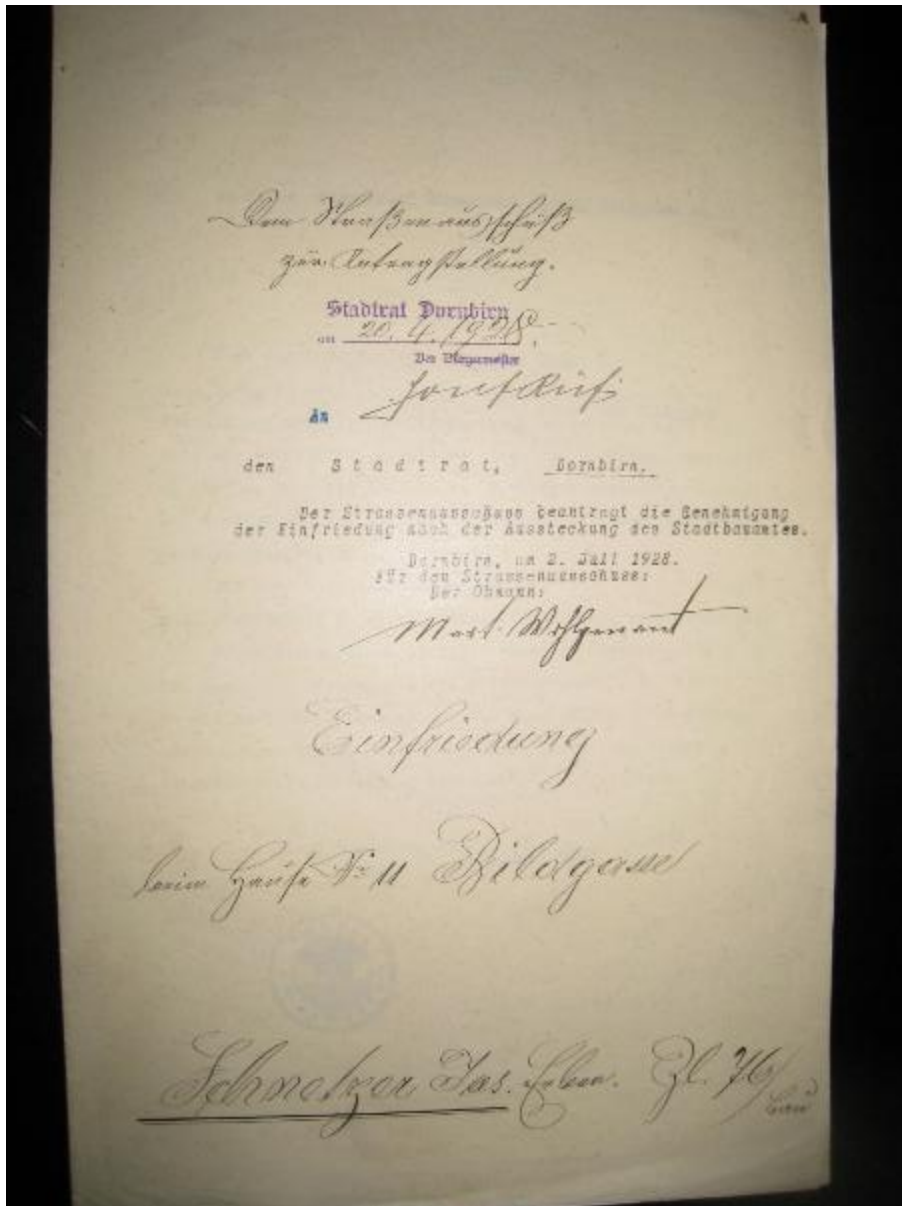 Dem Straßenausschuß
zur Antragstellung.
Stadtrat Dornbirn
am 20. 4. 1928.
Der Bürgermeister
An
den Stadtrat, Dornbirn.
Der Strassenausschuss beantragt die Genehmigung
der Einfriedung nach der Aussteckung des Stadtbauamtes.
Dornbirn, am 2. Juli 1928.
Für den Strassenausschuss:
Der Obmann:
Mart. Wohlgenant
Einfriedung
beim Hause No 11 Bildgasse
Schmelzer Jos. Erben. Zl. 76/
Bau